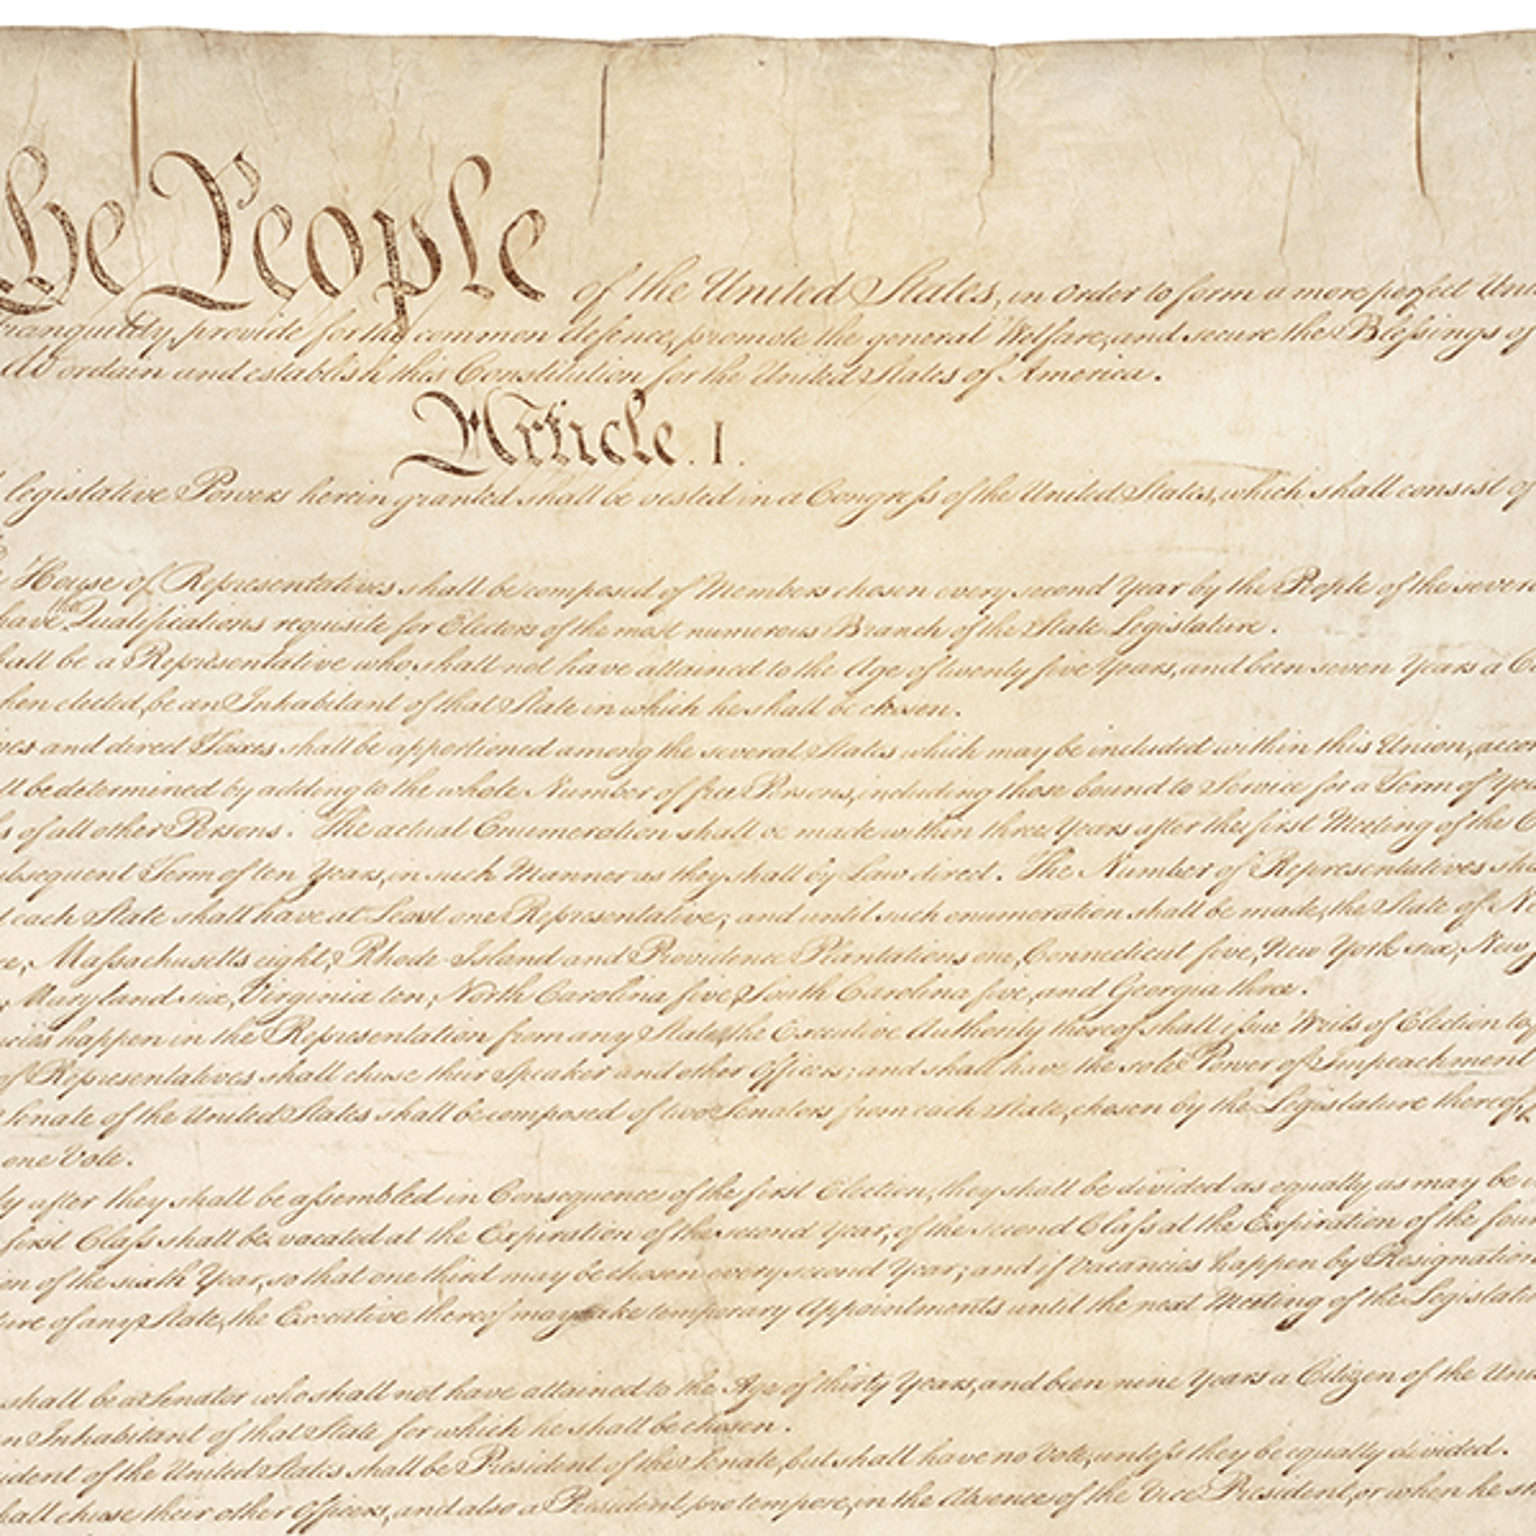 he People of the United States, in Order to form a more perfect Uni
ranquility, provide for the common defence, promote the general Welfare, and secure the Blessings of
do ordain and establish this Constitution for the United States of America.
Article. I.
legislative Powers herein granted shall be vested in a Congress of the United States, which shall consist of
House of Representatives shall be composed of Members chosen every second Year by the People of the severa
have the Qualifications requisite for Electors of the most numerous Branch of the State Legislature.
hall be a Representative who shall not have attained to the Age of twenty five Years, and been seven Years a C
hen elected, be an Inhabitant of that State in which he shall be chosen.
ves and direct Taxes shall be apportioned among the several States which may be included within this Union, accor
ll be determined by adding to the whole Number of free Persons, including those bound to Service for a Term of Yea
s of all other Persons. The actual Enumeration shall be made within three Years after the first Meeting of the C
ubsequent Term of ten Years, in such Manner as they shall by Law direct. The Number of Representatives sha
t each State shall have at Least one Representative; and until such enumeration shall be made, the State of N
re, Massachusetts eight, Rhode-Island and Providence Plantations one, Connecticut five, New-York six, New J
, Maryland six, Virginia ten, North Carolina five, South Carolina five, and Georgia three.
ncies happen in the Representation from any State, the Executive Authority thereof shall issue Writs of Election to f
of Representatives shall chuse their Speaker and other Officers; and shall have the sole Power of Impeachment
Senate of the United States shall be composed of two Senators from each State, chosen by the Legislature thereof,
one Vote.
ly after they shall be assembled in Consequence of the first Election, they shall be divided as equally as may be i
first Class shall be vacated at the Expiration of the second Year, of the second Class at the Expiration of the four
on of the sixth Year, so that one third may be chosen every second Year; and if Vacancies happen by Resignation
ure of any State, the Executive thereof may make temporary Appointments until the next Meeting of the Legislatu
shall be a Senator who shall not have attained to the Age of thirty Years, and been nine Years a Citizen of the Uni
n Inhabitant of that State for which he shall be chosen.
sident of the United States shall be President of the Senate, but shall have no Vote, unless they be equally divided.
hall chuse their other Officers, and also a President pro tempore, in the Absence of the Vice President, or when he sh